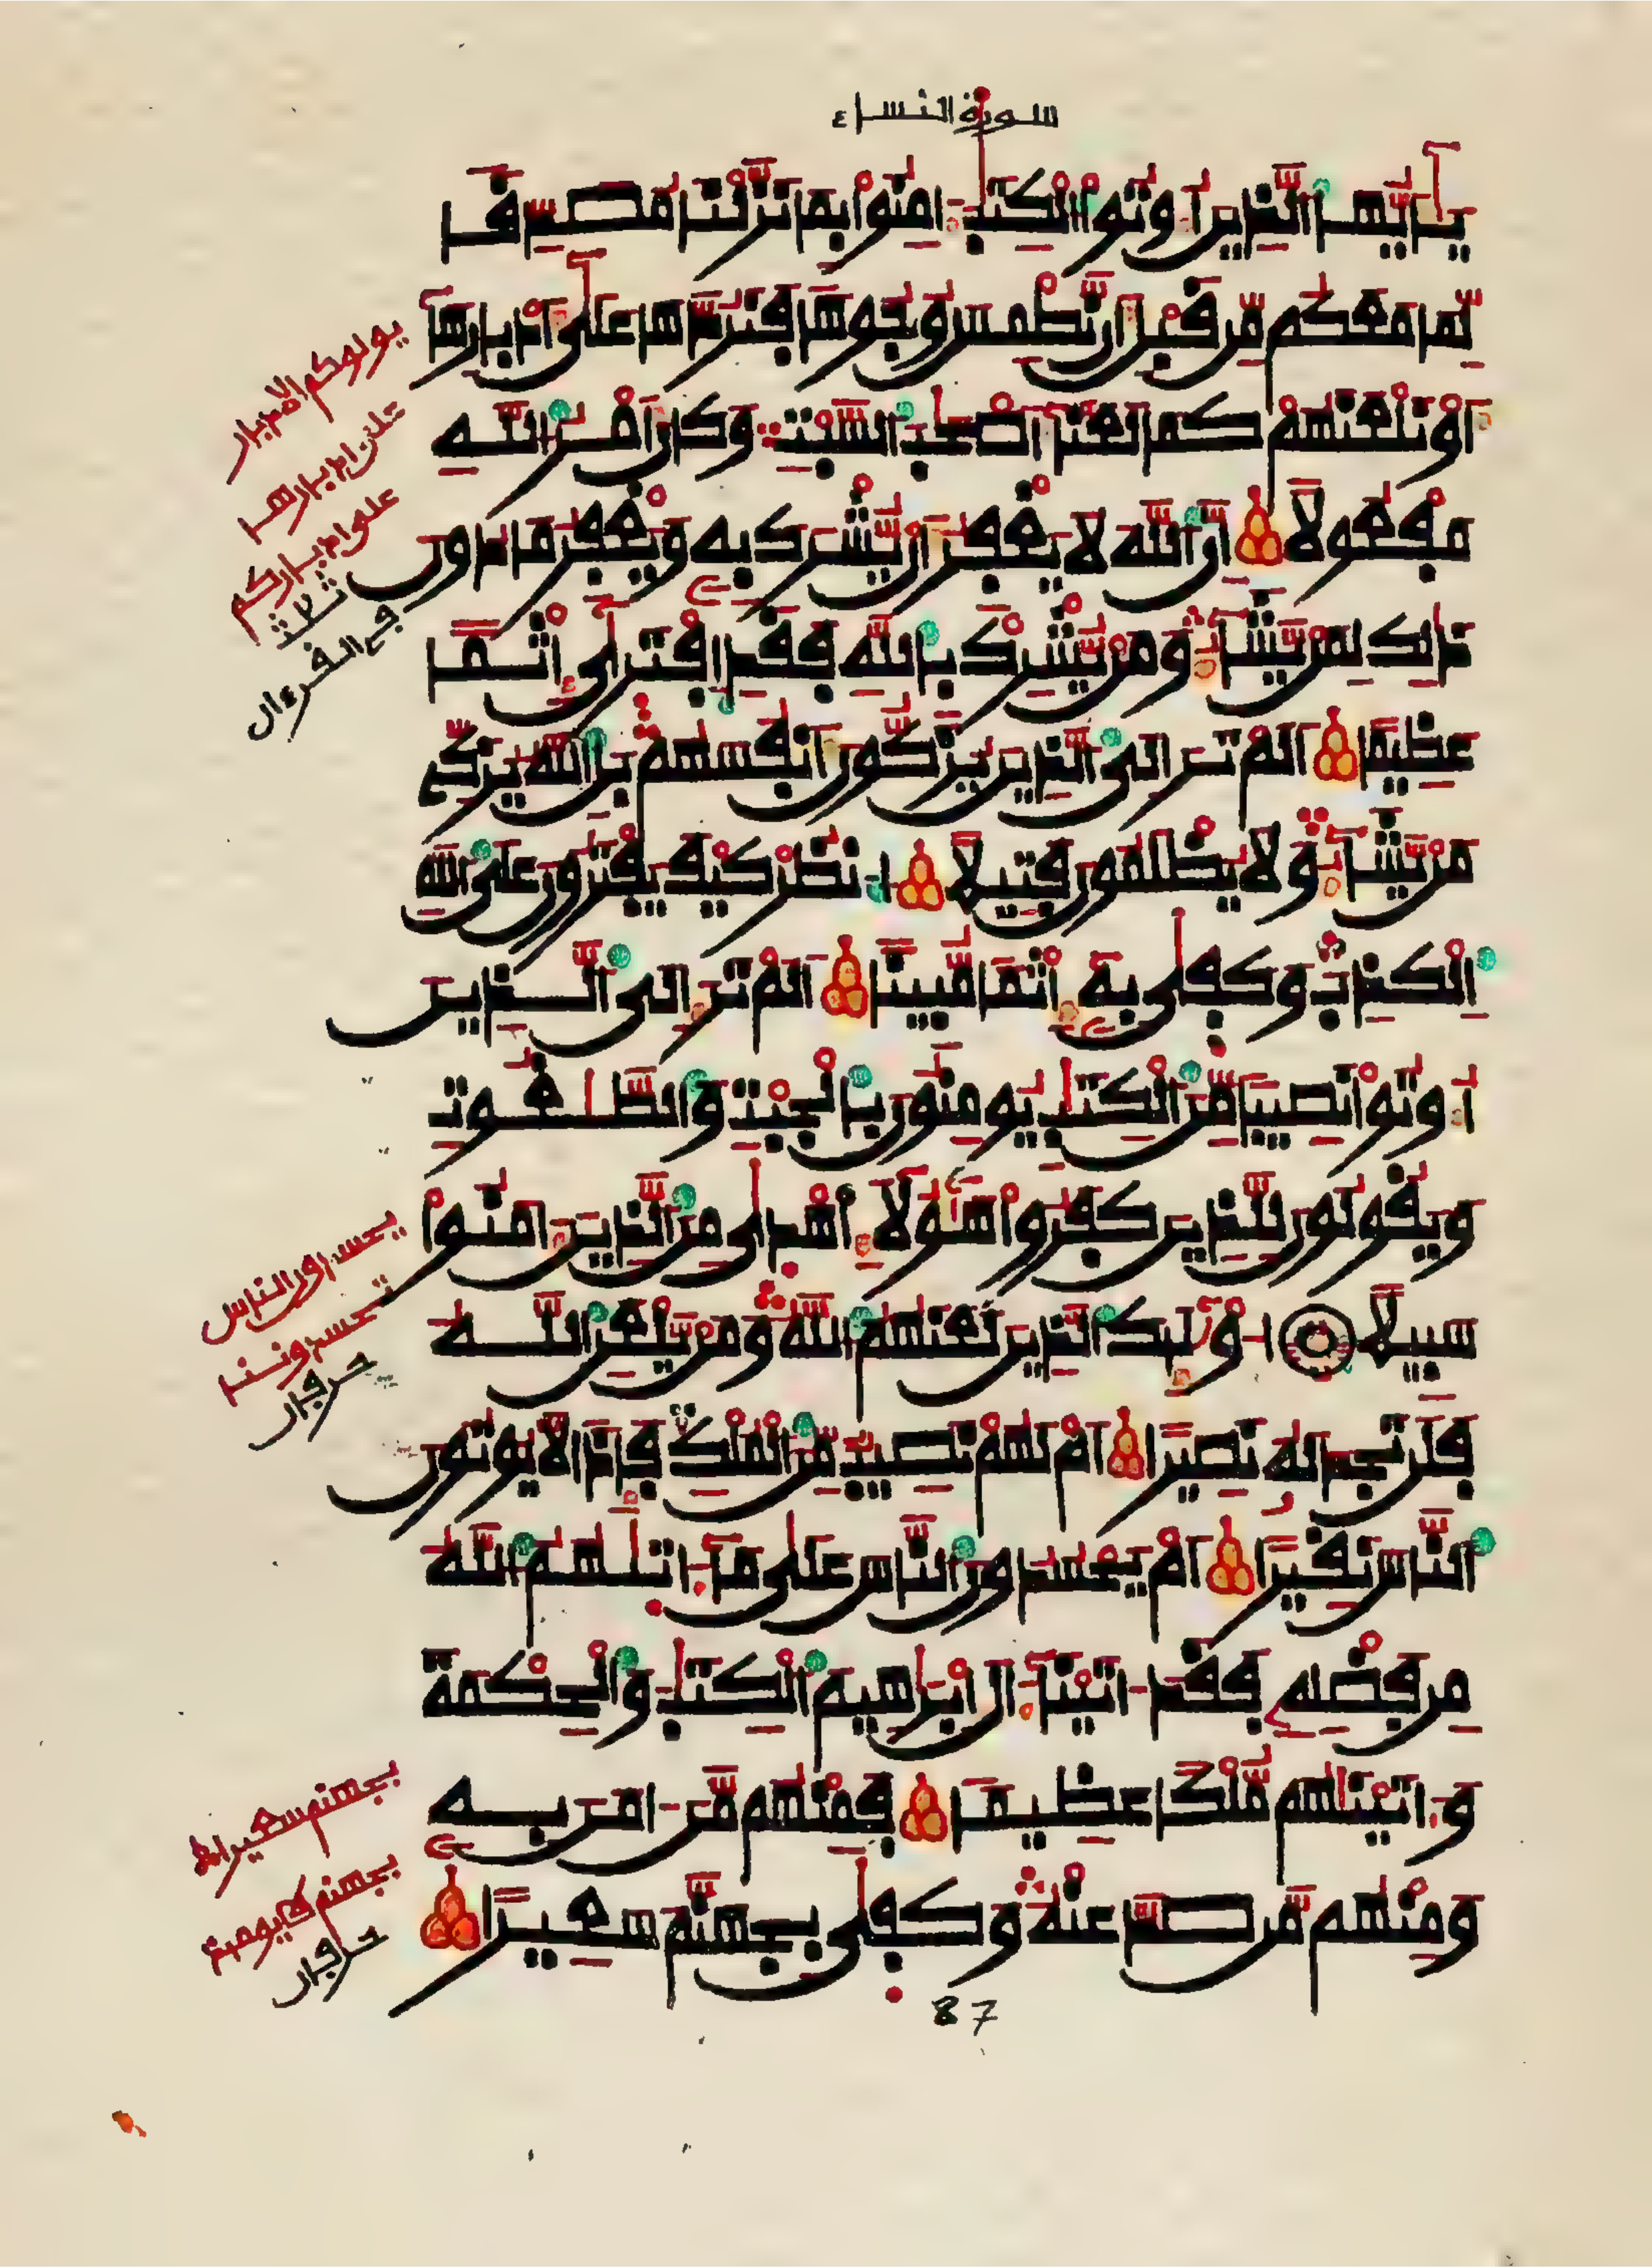 سورة النساء
يَٰأَيُّهَا ٱلذِينَ أُوتُوا۟ ٱلْكِتَٰبَ ءَامِنُوا۟ بِمَا نَزَّلْنَا مُصَدِّقا
لِّمَا مَعَكُم مِّن قَبْلِ أَن نَّطْمِسَ وُجُوها فَنَرُدَّهَا عَلَىٰ أَدْبَارِهَا
أَوْ نَلْعَنَهُمْ كَمَا لَعَنَّا أَصْحَٰبَ ٱلسَّبْتِ وَكَانَ أَمْرُ ٱللَّهِ
مَفْعُولًا إِنَّ ٱللَّهَ لَا يَغْفِرُ أَن يُّشْرَكَ بِهِ وَيَغْفِرُ مَا دُونَ
ذَٰلِكَ لِمَن يَّشَاءُ وَمَن يُّشْرِكْ بِٱللَّهِ فَقَدِ ٱفْتَرَىٰ إِثْما
عَظِيمًا أَلَمْ تَرَ إِلَى ٱلذِينَ يُزَكُّونَ أَنفُسَهُم بَلِ ٱللَّهُ يُزَكِّے
مَن يَّشَاءُ وَلَا يُظْلَمُونَ فَتِيلًا ٱنظُرْ كَيْفَ يَفْتَرُونَ عَلَى ٱللَّهِ
ٱلْكَذِبَ وَكَفَىٰ بِهِ إِثْما مُّبِينًا أَلَمْ تَرَ إِلَى ٱلذِينَ
أُوتُوا۟ نَصِيبا مِّنَ ٱلْكِتَٰبِ يُومِنُونَ بِٱلْجِبْتِ وَٱلطَّٰغُوتِ
وَيَقُولُونَ لِلَّذِينَ كَفَرُوا۟ هَٰؤُلَاءِ أَهْدَىٰ مِنَ ٱلذِينَ ءَامَنُوا۟
سَبِيلًا أُو۟لَٰئِكَ ٱلذِينَ لَعَنَهُمُ ٱللَّهُ وَمَن يَّلْعَنِ ٱللَّهُ
فَلَن تَجِدَ لَهُ نَصِيرًا أَمْ لَهُمْ نَصِيب مِّنَ ٱلْمُلْكِ فَإِذا لَّا يُوتُونَ
ٱلنَّاسَ نَقِيرًا أَمْ يَحْسُدُونَ ٱلنَّاسَ عَلَىٰ مَا ءَاتَىٰهُمُ ٱللَّهُ
مِن فَضْلِهِ فَقَدَ ءَاتَيْنَا ءَالَ إِبْرَاهِيمَ ٱلْكِتَٰبَ وَٱلْحِكْمَةَ
وَءَاتَيْنَٰهُم مُّلْكا عَظِيمًا فَمِنْهُم مَّنَ ءَامَنَ بِهِ
وَمِنْهُم مَّن صَدَّ عَنْهُ وَكَفَىٰ بِجَهَنَّمَ سَعِيرًا
87
يولوكم الادبار
على ادبارها
على ادباركم
ثلاثة
في القرءان
يحسدون الناس
تحسدوننا
حرفان
بجهنم سعيرا
حرفان